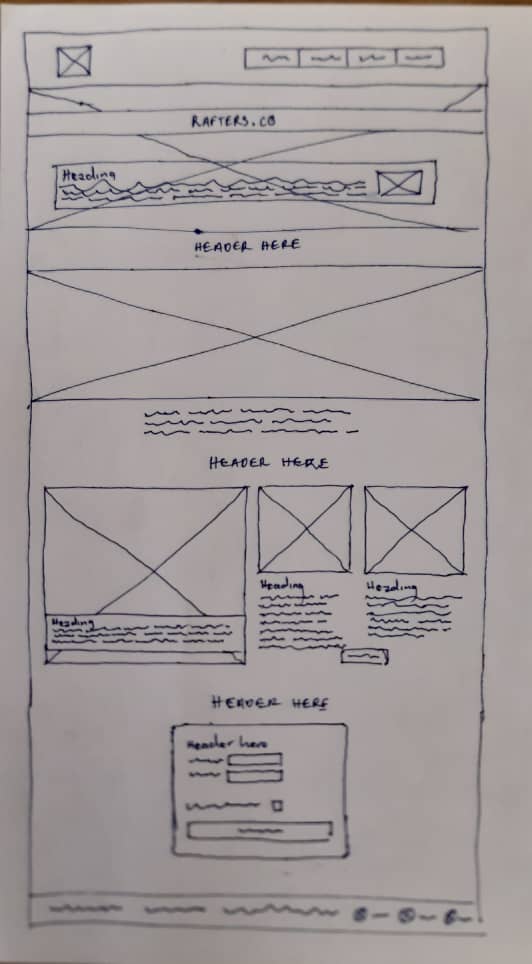 RAFTERS.CO
Heading
HEADER HERE
HEADER HERE
Heading
Heading
Heading
HEADER HERE
Header here